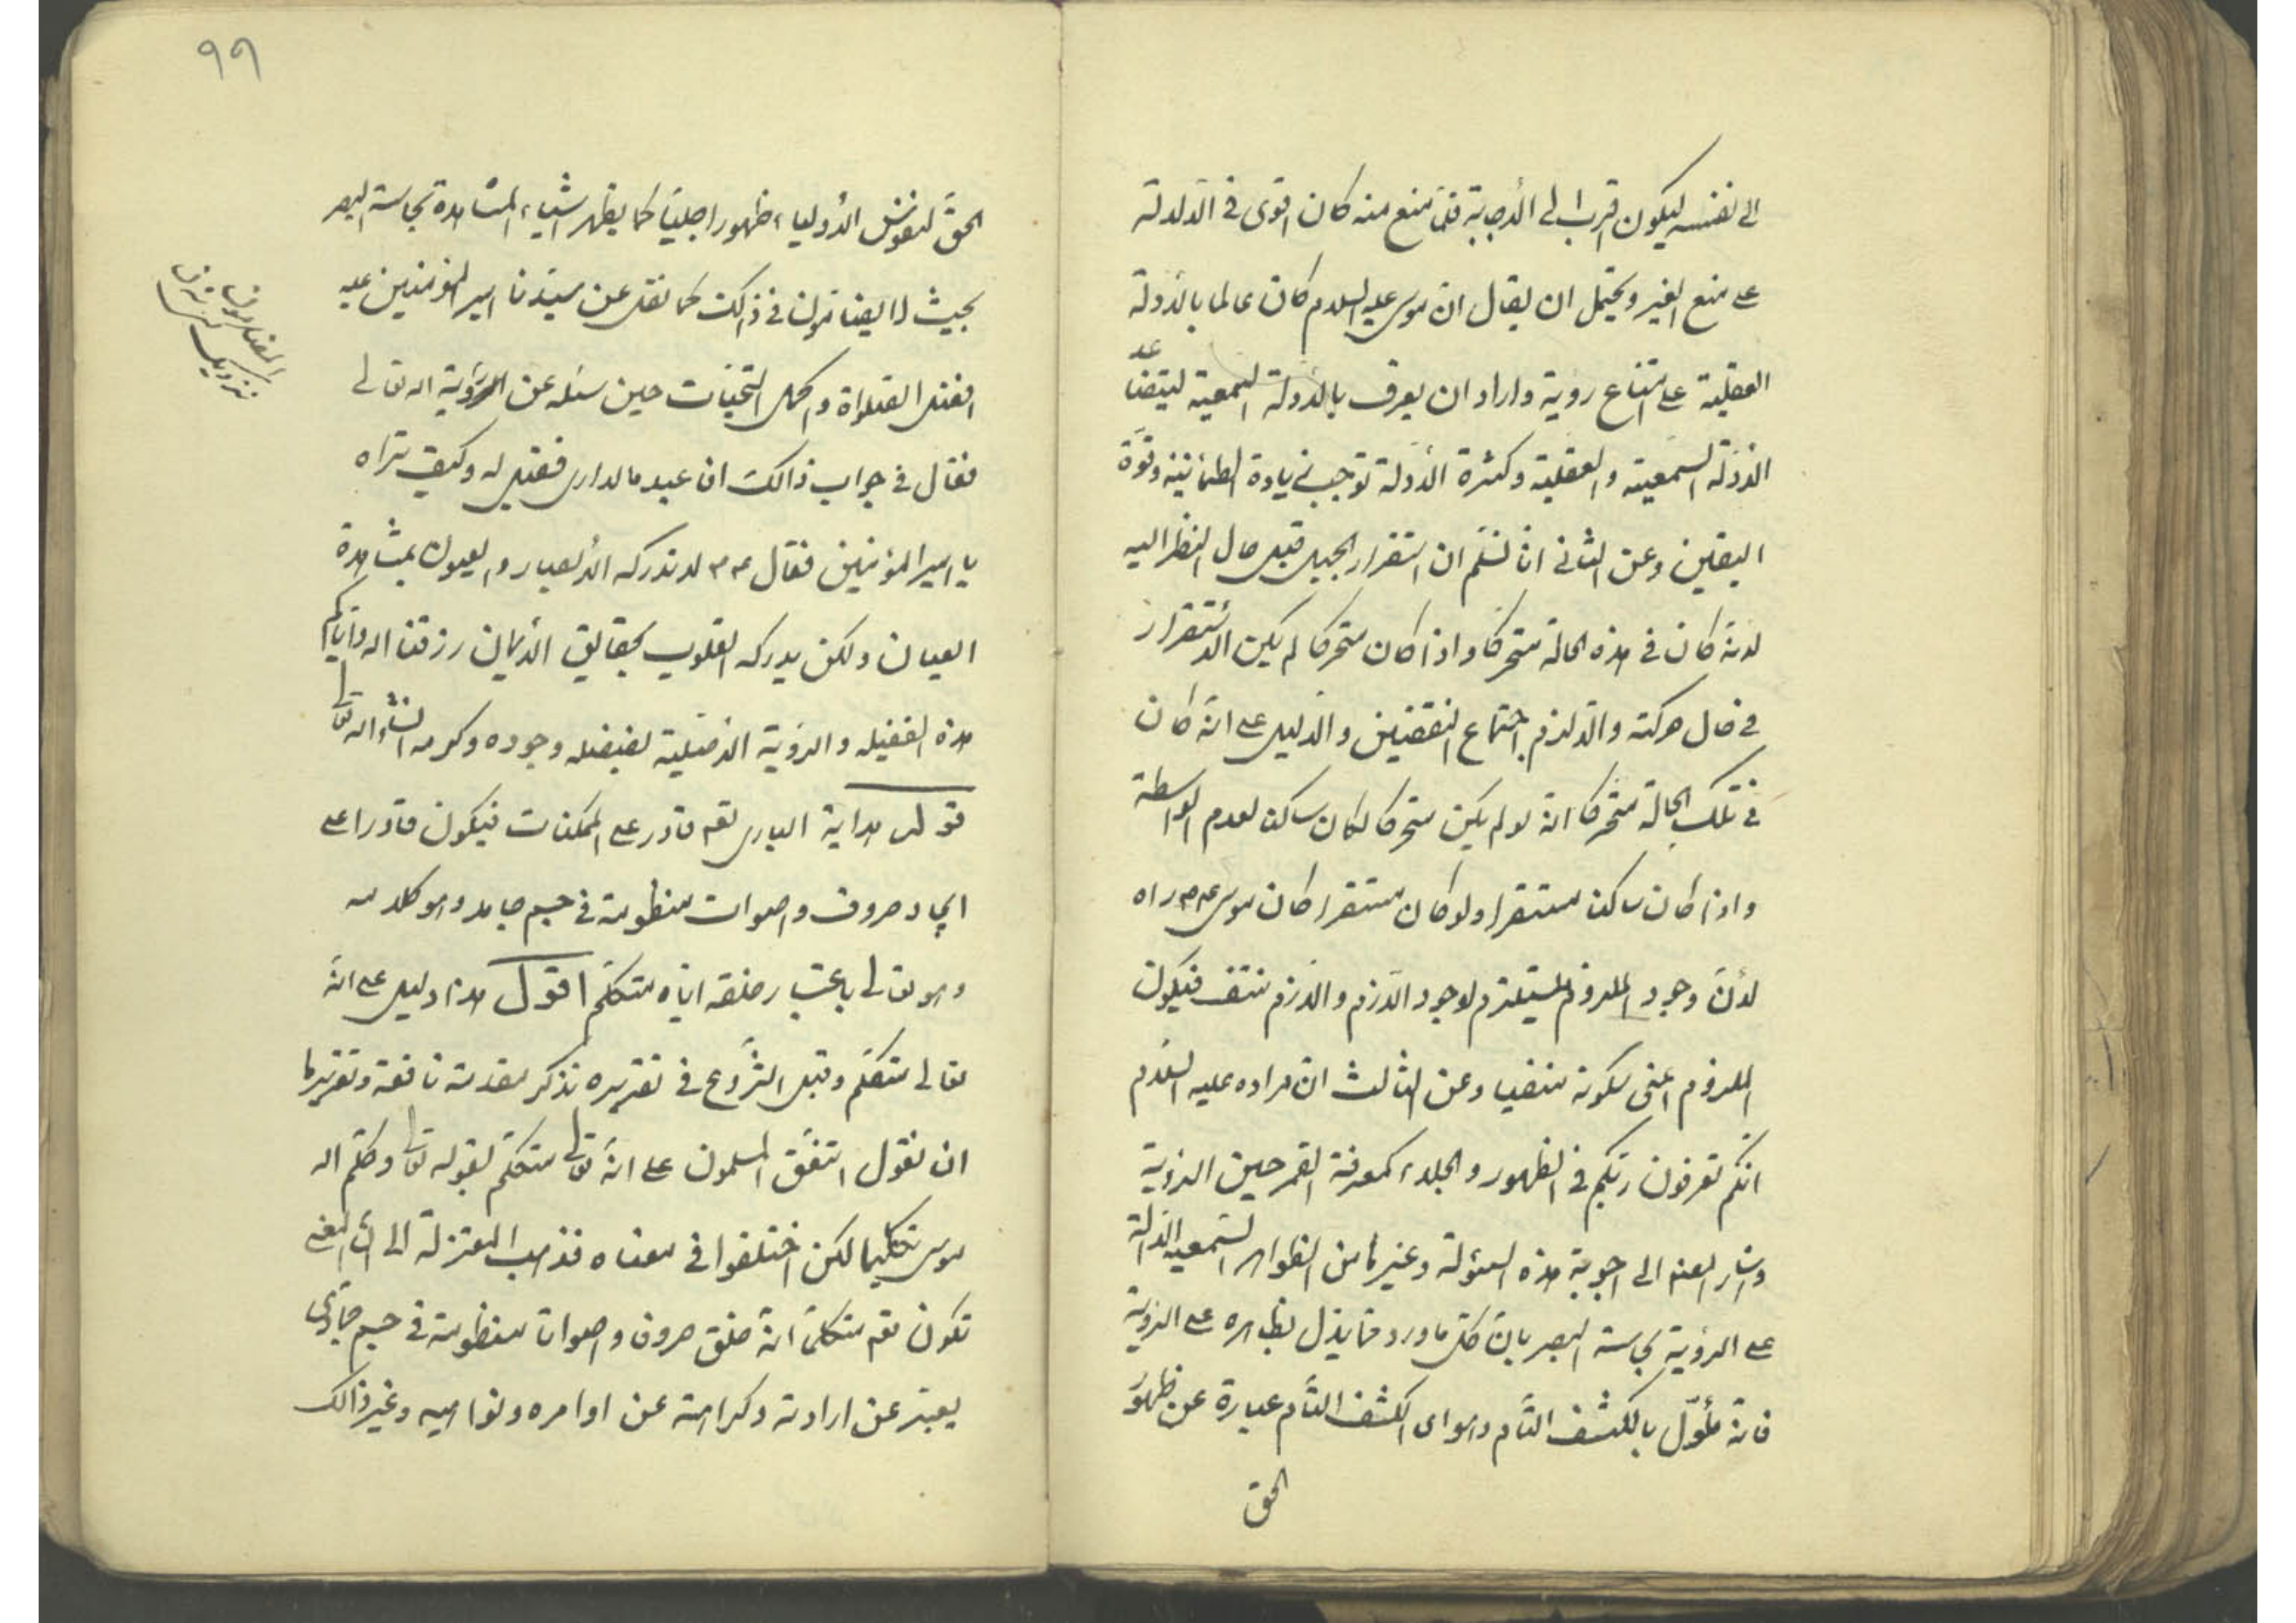 الى نفسه ليكون اقرب الى الأجابة فلمّا منع منه كان اقوى فى الدّلالة
على منع الغير ويحتمل ان يقال ان موسى عليه السلام كان عالما بالأدلة
العقلية على امتناع رؤية واراد ان يعرف بالأدلة السّمعية ليتضاعد
الأدلة السمعية والعقلية وكثرة الأدلة توجب زيادة الطمأنينة وقوّة
اليقين وعن الثانى انا لا نسلّم ان استقرار الجبل قبل حال النظر اليه
لانه كان فى هذه الحالة متحركا واذا كان متحركا لم يكن الاستقرار
فى حال حركته والا لزم اجتماع النقيضين والدليل على انه كان
فى تلك الحالة متحركا انه لو لم يكن متحركا لكان ساكنا لعدم الواسطة
واذا كان ساكنا مستقرا ولو كان مستقرا كان موسى عم راه
لأنّ وجود الملزوم ليستلزم لوجود اللازم واللازم منتف فيكون
الملزوم اعنى سكونه منفيا وعن الثالث ان مراده عليه السلام
انكم تعرفون ربّكم فى الظهور والجلاء كمعرفة القمر حين الرؤية
واشار المصنف الى اجوبة هذه اسئولة وغيرها من الظواهر السّمعية الدّالة
على الرؤية بحاسة البصر بان كل ما ورد مما يدل بظاهره على الرؤية
فانه مأوّل بالكشف التّام وهو اى الكشف التّام عبارة عن ظهور
الحق
٩٩
الحقّ لنفوس الأولياء ظهورا جليّا كما يظهر اشياء المشاهدة بحاسة البصر
بحيث لا يضارّون فى ذالك كما نقل عن سيّدنا امير المؤمنين عليه
افضل الصلواة واكمل التحيّات حين سئله عن الرؤية اله تعالى
فقال فى جواب ذالك ان عبد ما لا ارى فقيل له وكيف تراه
يا امير المؤمنين فقال عم لا تدركه الأبصار والعيون بمشاهدة
العيان ولكن يدركه القلوب بحقايق الأيمان رزقنا اله واياكم
هذه الفضيله والرؤية بفضله وجوده وكرمه انشاء اله تعالى
قوله هداية البارى تعه قادر على الممكنات فيكون قادرا على
ايجاد حروف واصوات منظومة فى جسم جامد وهو كلامه
وهو تعالى باعتبار خلقه اياه متكلّم اقول هذا دليل على انّه
تعالى متكلّم وقبل الشّروع فى تقريره نذكر مقدمة نافعة وتقريرها
ان نقول اتفّق المسلمون على انّه تعالى متكلّم لقوله تعالى وكلّم اله
موسى تكليما لكن اختلفوا فى معناه فذهب المعتزلة الى ان المعنى
تكون تعه متكلّما انّه خلق حروف واصواتا منظومة فى جسم جمادى
يعبّر عن ارادته وكراهته عن اوامره ونواهيه وغير ذالك